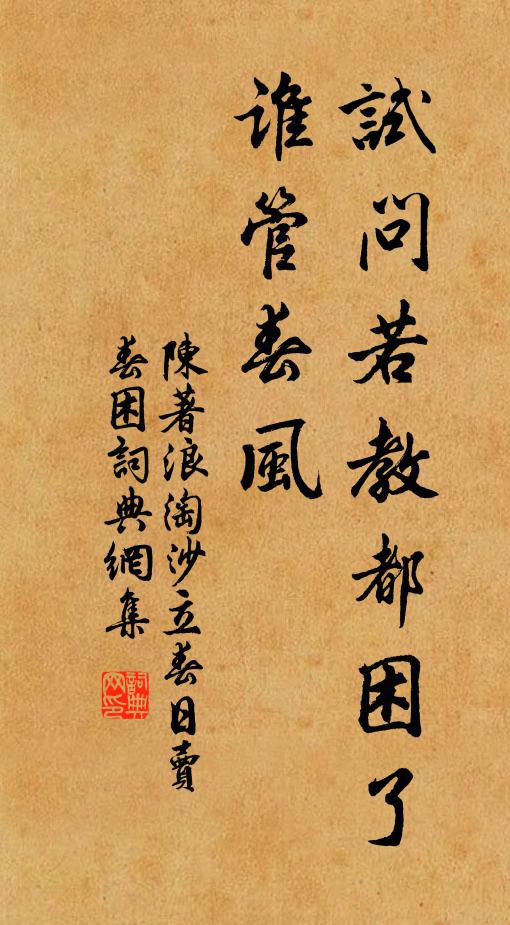 試問若教都困了
誰管春風
陳著浪淘沙立春日賣
春困詞典網集
詞典網印